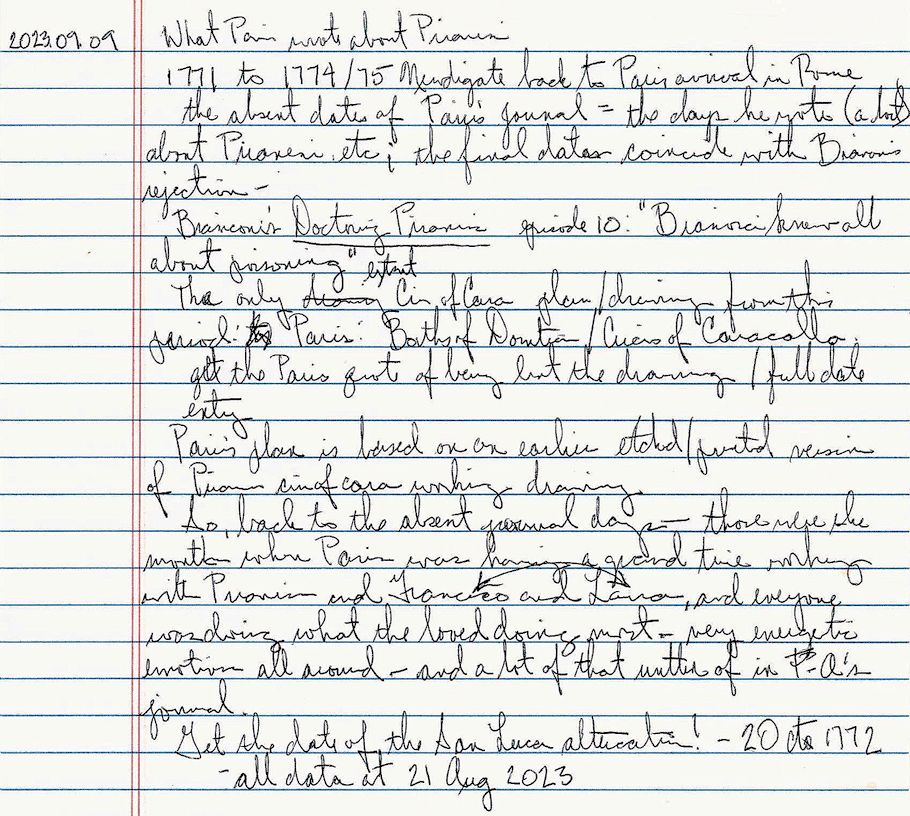 2023.09.09 What Paris wrote about Piranesi
1771 to 1774/75 back to Paris arrival in Rome
the absent dates of Paris journal = the days he wrote (a lot)
about Piranesi, etc; the final dates coincide with
rejection –
Bianconi's Doctoring Piranesi episode 10: "Bianconi knew all
about poisoning" extant
The only Circ of Cara plan/drawing from this
period: Paris: Baths of Domitian/Circus of Caracalla;
get the Paris quote of being lent the drawing / full date
entry
Paris plan is based on an earlier etched/printed version
of Piranesi circ of cara working drawing
So, back to the absent journal days – those were the
months when Paris was having a grand time working
with Piranesi and Francesco and Laura, and everyone
was doing what they loved doing most – very energetic
emotion all around – and a lot of that written of in P-A's
journal.
Get the date of the San Luca altercation! – 20 1772
– all data at 21 Aug 2023